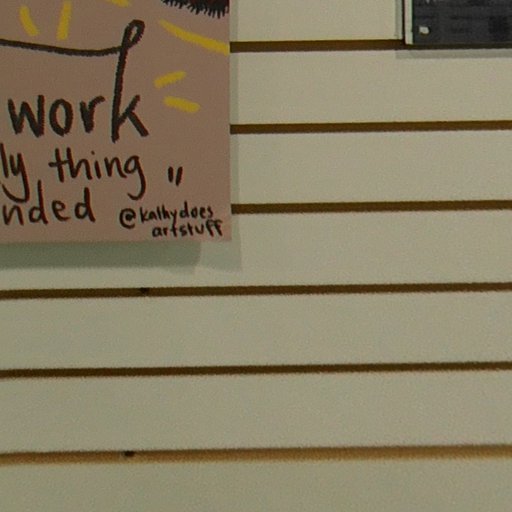 work
ly thing "
nded @kathydoes
artstuff